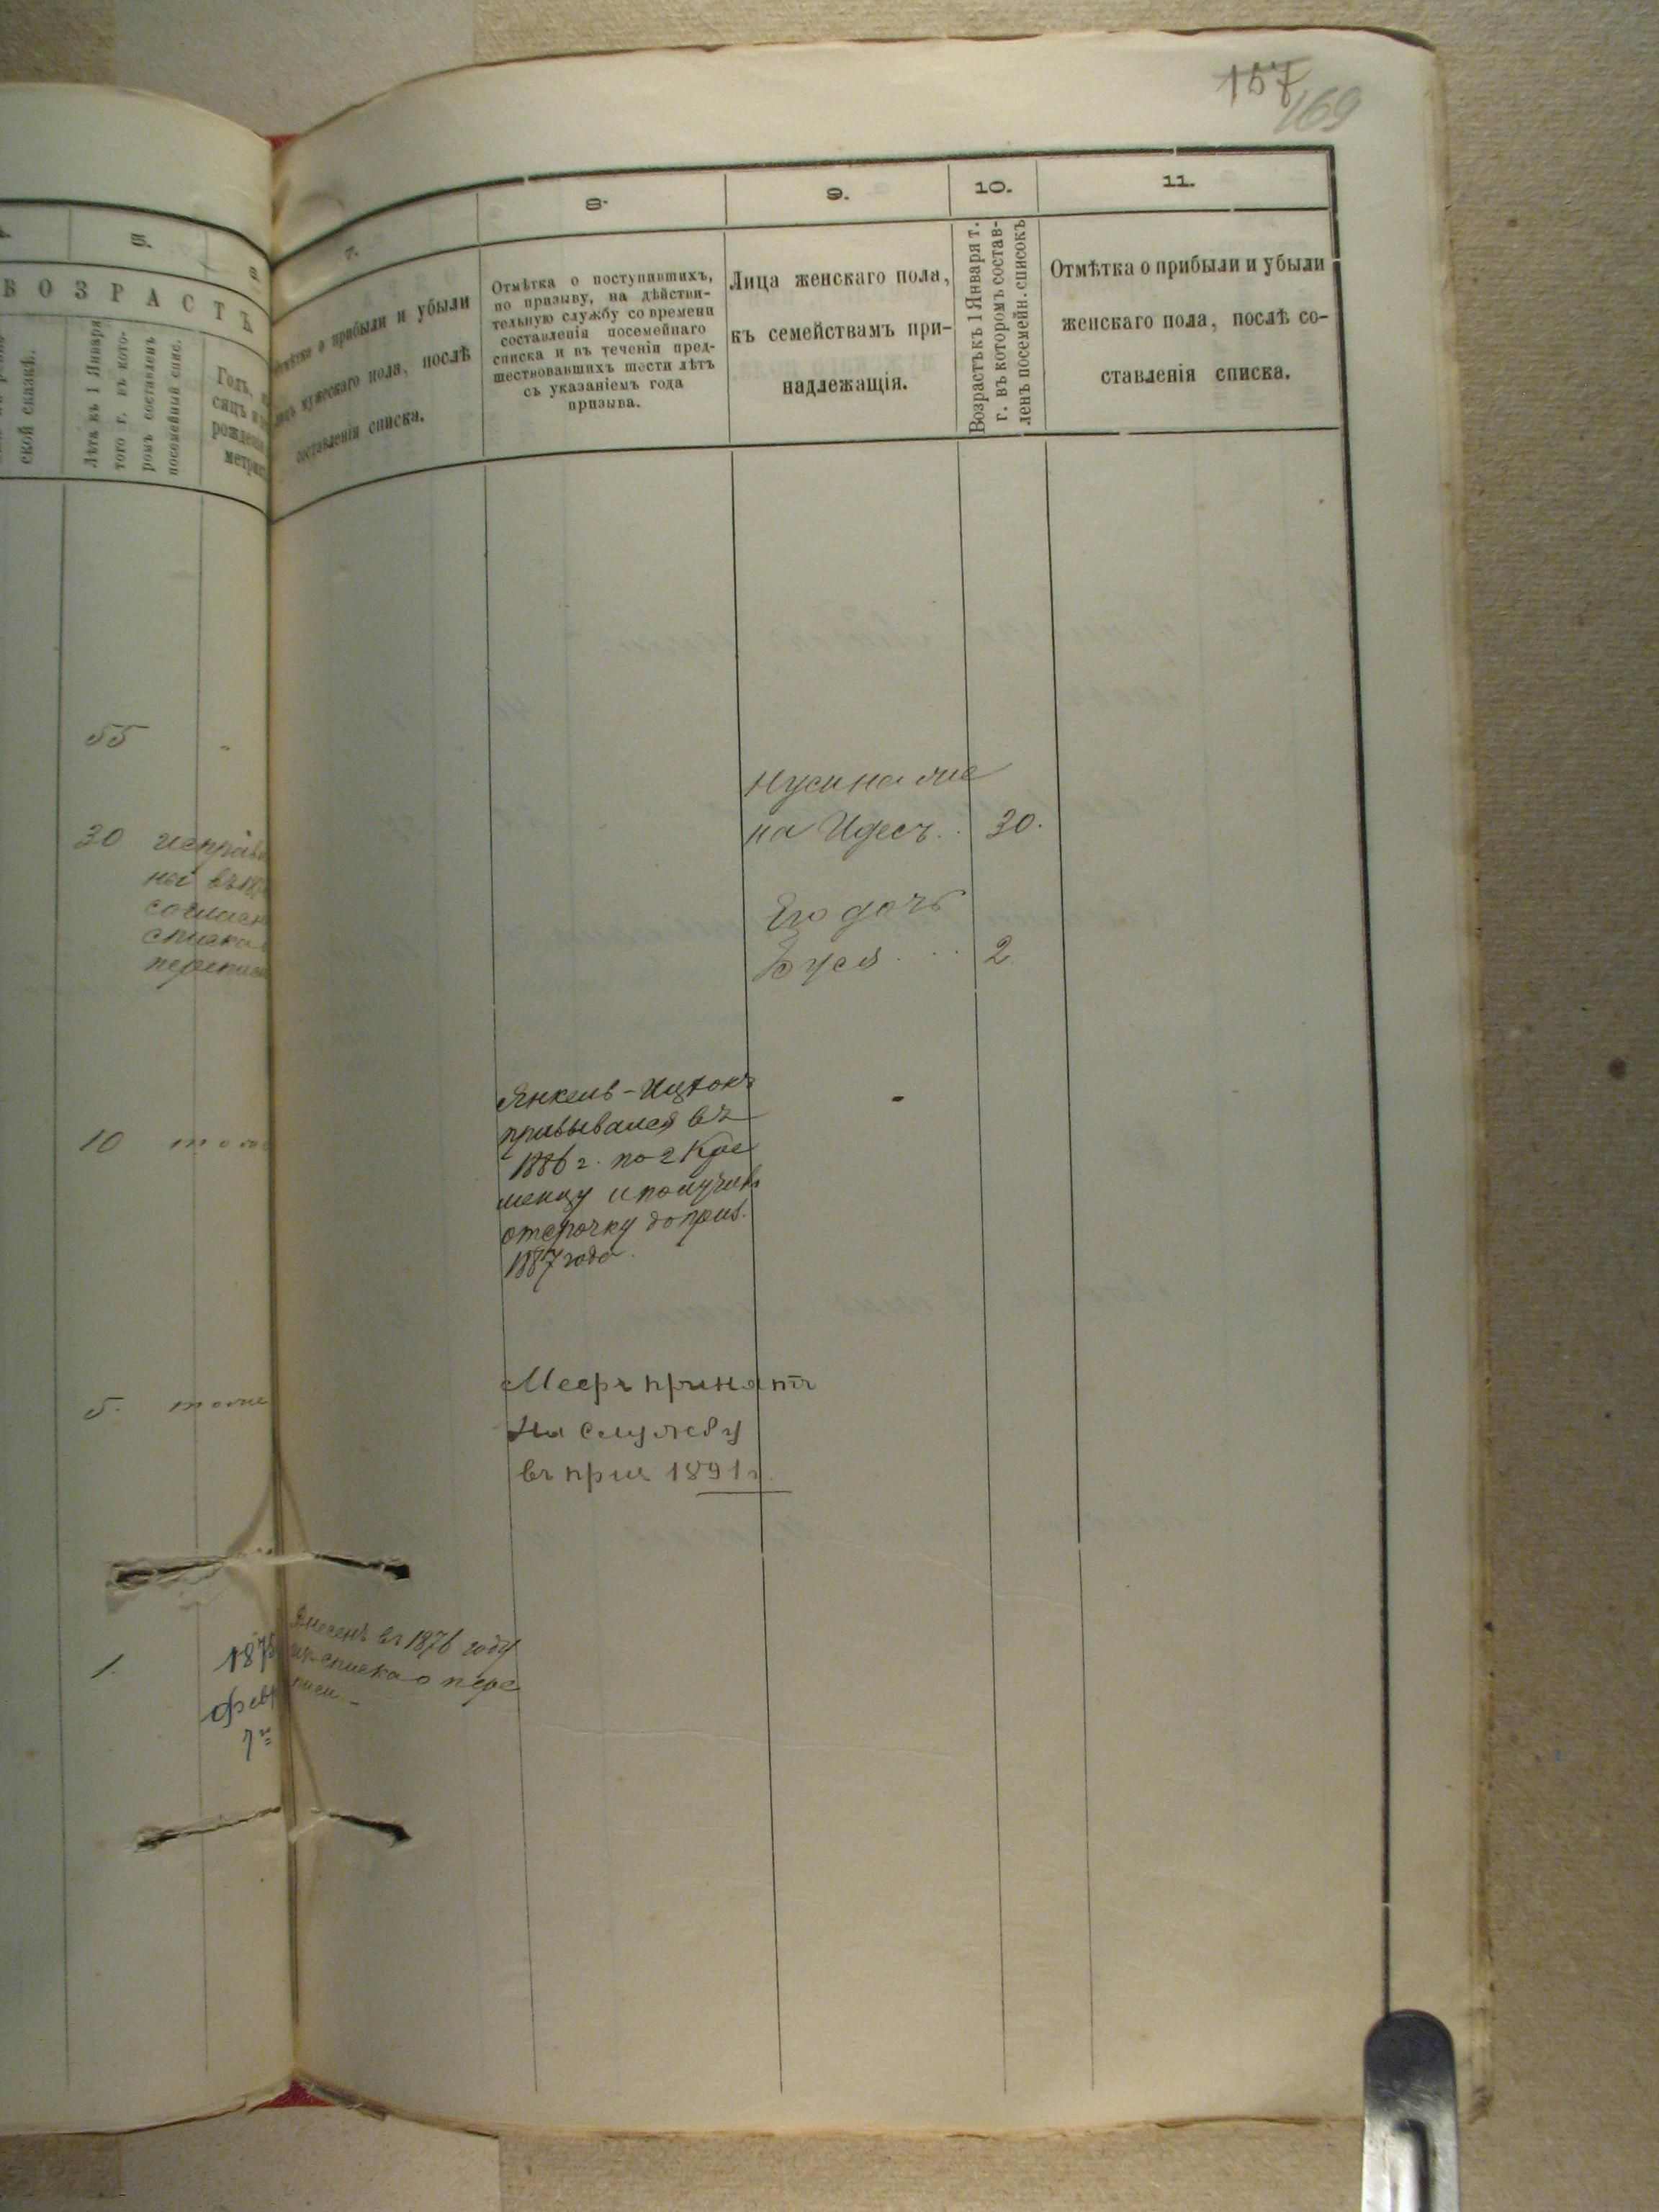 157
169
5.
7.
8.
9.
10.
11.
ВОЗРАСТЪ
ской сказкѣ.
Лѣта къ 1 Января
того г. въ кото-
ромъ составленъ
посемейный спис.
Годъ,
рожден
метри
Отмѣтка о прибыли и убыли
лицъ мужескаго пола, послѣ
составленія списка.
Отмѣтка о поступившихъ,
по призыву, на дѣйстви-
тельную службу со времени
составленія посемейнаго
списка и въ теченіи пред-
шествовавшихъ шести лѣтъ
съ указаніемъ года
призыва.
Лица женскаго пола,
къ семействамъ при-
надлежащія.
Возрастъ къ 1 Января т.
г. въ которомъ состав-
ленъ посемейн. списокъ
Отмѣтка о прибыли и убыли
женскаго пола, послѣ со-
ставленія списка.
55
30
10
5.
1.
Нусина же
на Идесъ.. 30.
Его дочь
Буся ... 2
Янкель-Ицкокъ
призывался въ
1886 г. по г Кре
менцу и получилъ
отсрочку до приз.
1887 года.
Мееръ принятъ
На службу
въ приз 1891 г.
Внесенъ въ 1876 году
изъ списка о пере
писи -
1875
Февр
7